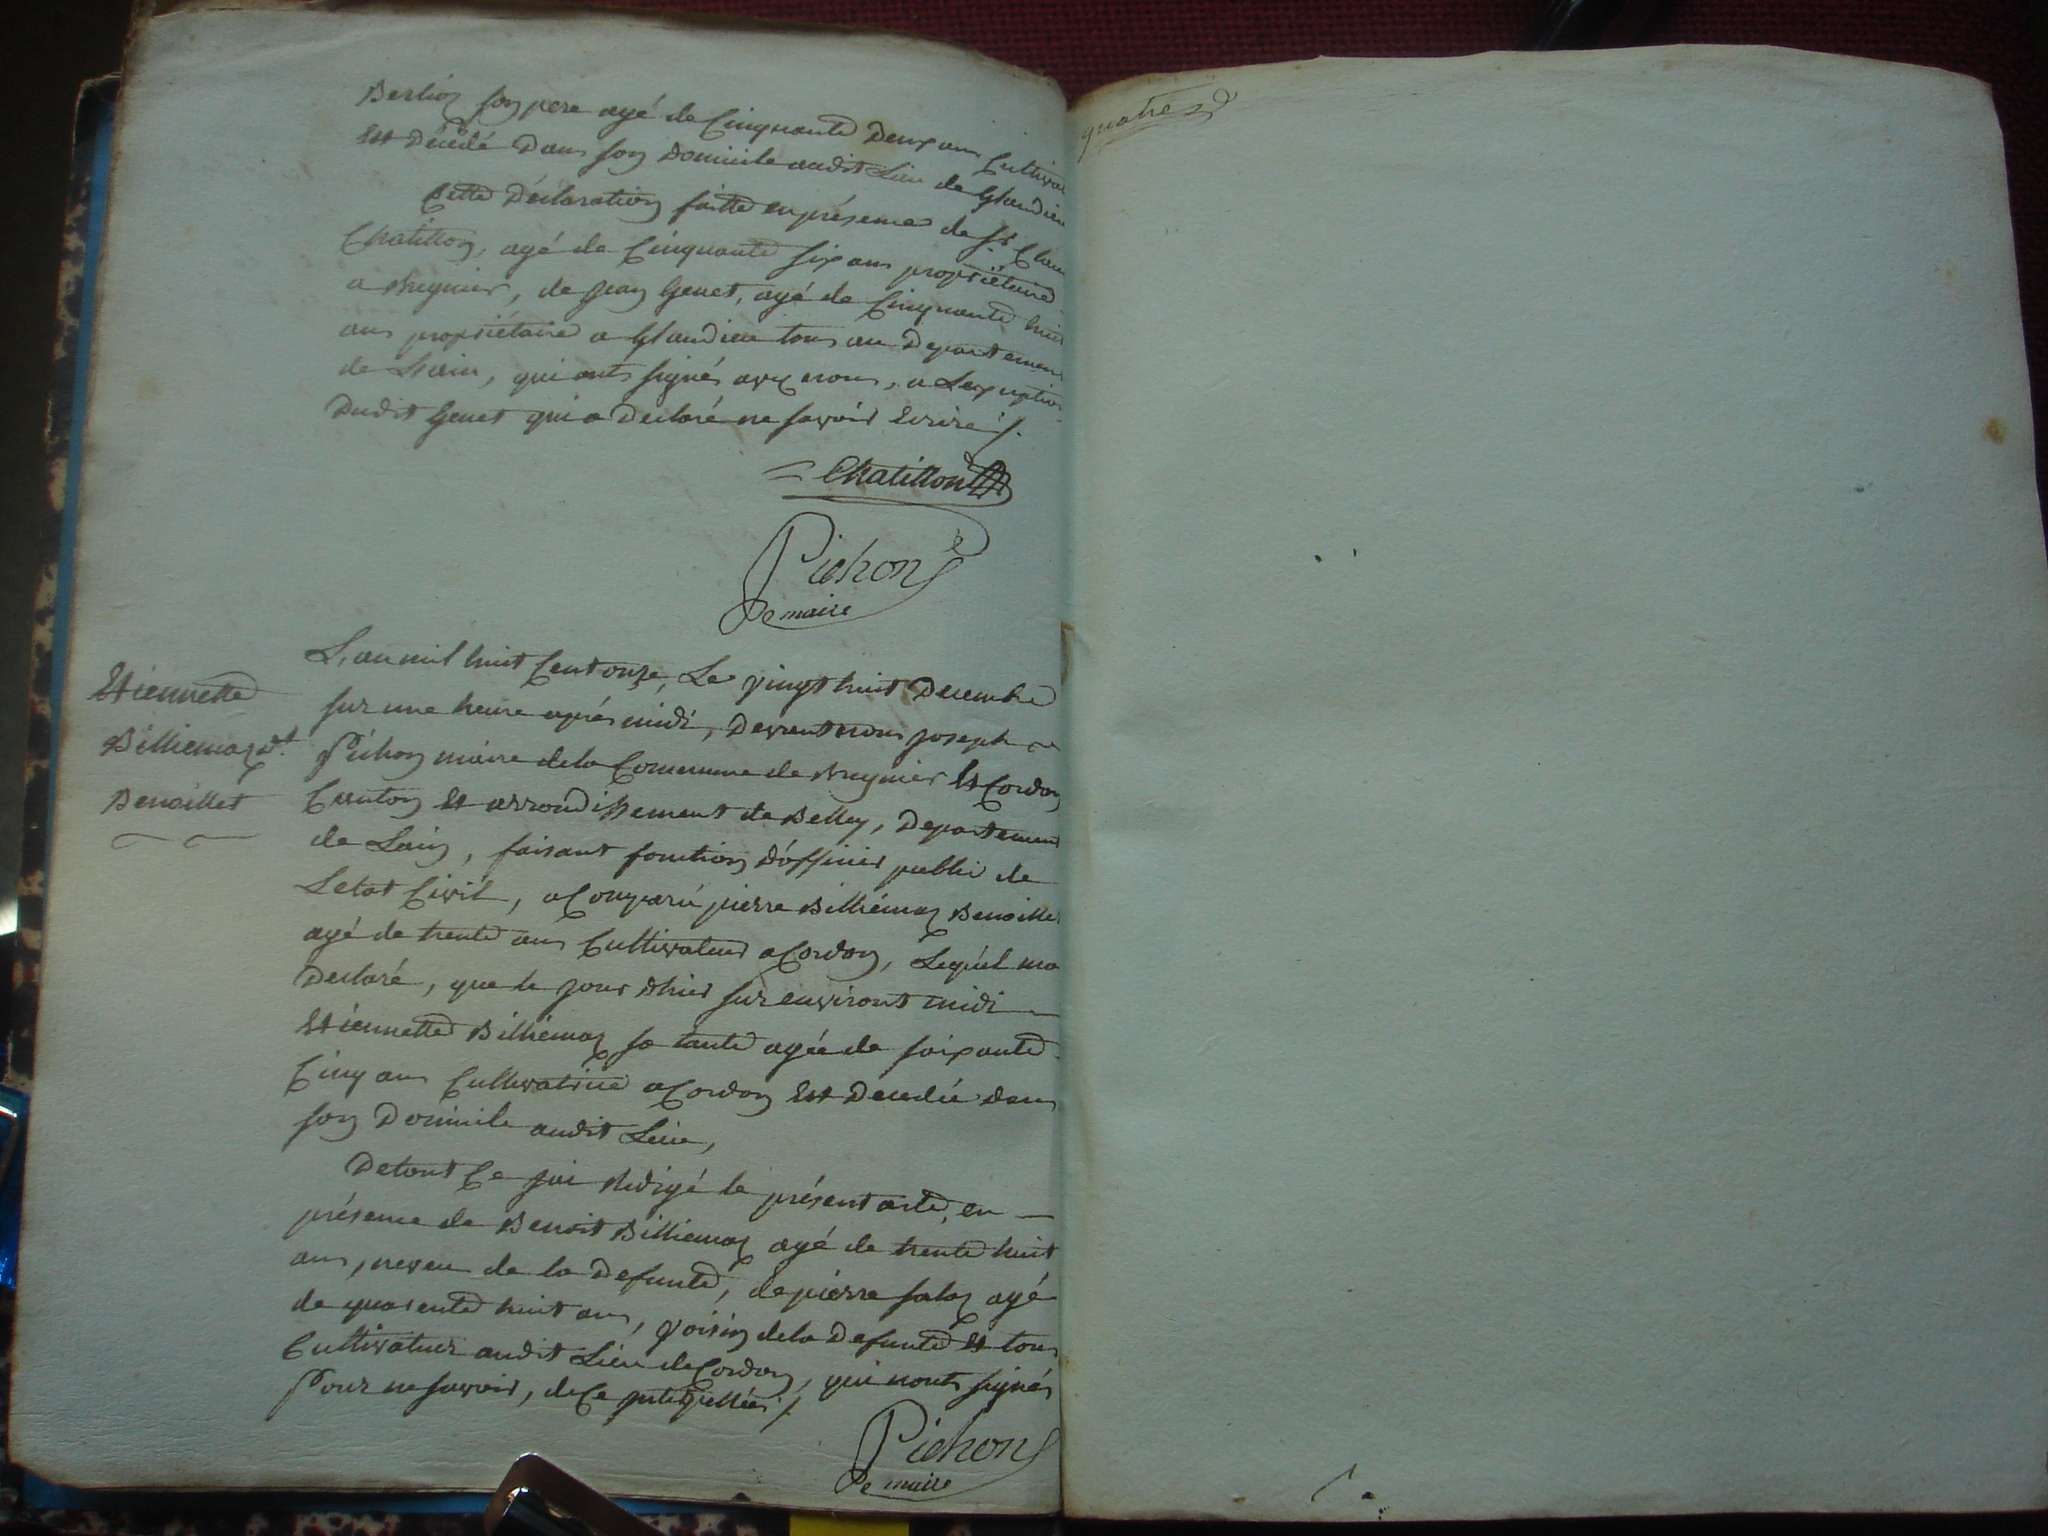 Berlioz son pere agé de Cinquante Deux ans Cultiva
Est Décédé Dans son Domicile audit Lieu de Glandieu
Cette Déclaration faitte en présence de Sr. Clau
Chatillon, agé de Cinquante six ans propriétaire
a Bregnier, de jean Genet, agé de Cinquante huit
ans propriétaire a Glandieu tous au Departement
de L'ain, qui onts signés avec nous, a Lexeption
Dudit Genet qui a Declaré ne savoir Ecrire ./.
Chatillon
Pichon
maire
L'an mil huit Cent onze, Le vingt huit Decembre
sur une heure aprés midi, Devent nous joseph
Pichon maire de la Commune de Bregnier Et Cordon
Canton Et arrondissement de Belley, Departement
de Lain, faisant fonction d'officier public de
Letat Civil, a Comparu pierre Billiémaz Benoillet
agé de trente ans Cultivateur a Cordon, Lequel ma
Declaré, que le jour d'hier sur environt midi
Etiennette Billiémaz sa tante agée de soixante
Cinq ans Cultivatrice a Cordon Est Decedée dans
son Domicile audit Lieu,
De tout Ce jai Redigé le présent acte, en
présence de Benoit Billiemaz agé de trente huit
ans, neveu de la Defunte, de pierre salaz agé
de quarente huit ans, voisin de la Defunte Et tous
Cultivateur audit Lieu de Cordon, qui nonts signés
Pour ne savoir, de Ce ./.
Pichon
maire
Etiennette
Billiemaz dt.
Benoillet
quatre